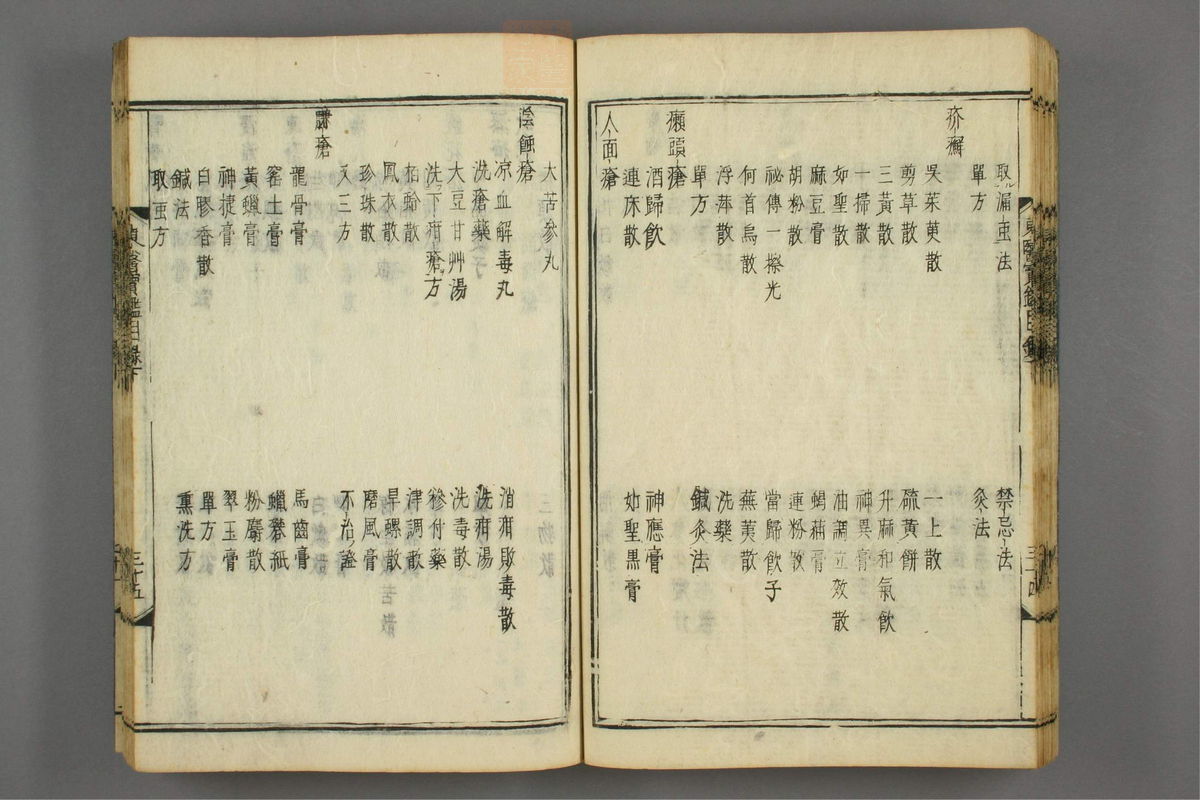 取漏䖝法
禁忌法
單方
灸法
疥癬
吳茱萸散
一上散
剪草散
硫黃餅
三黃散
升麻和氣飮
一掃散
神異膏
如聖散
油調立效散
麻豆膏
蝎藾膏
胡粉散
連粉散
祕傳一擦光
當歸飮子
何首烏散
蕪荑散
浮萍散
洗藥
單方
鍼灸法
癩頭瘡
酒歸飮
神應膏
連床散
如聖黑膏
人面瘡
東醫寶鑑目錄下
三十五
大苦參丸
陰蝕瘡
凉血解毒丸
消疳敗毒散
洗瘡藥
洗疳湯
大豆甘艸湯
洗毒散
洗下疳瘡方
糝付藥
栢蛤散
津調散
鳳衣散
旱螺散
珍珠散
磨風膏
又三方
不治證
臁瘡
龍骨膏
馬齒膏
窰土膏
蠟礬紙
黃蠟膏
粉麝散
神捷膏
翠玉膏
白膠香散
單方
鍼法
熏洗方
取䖝方